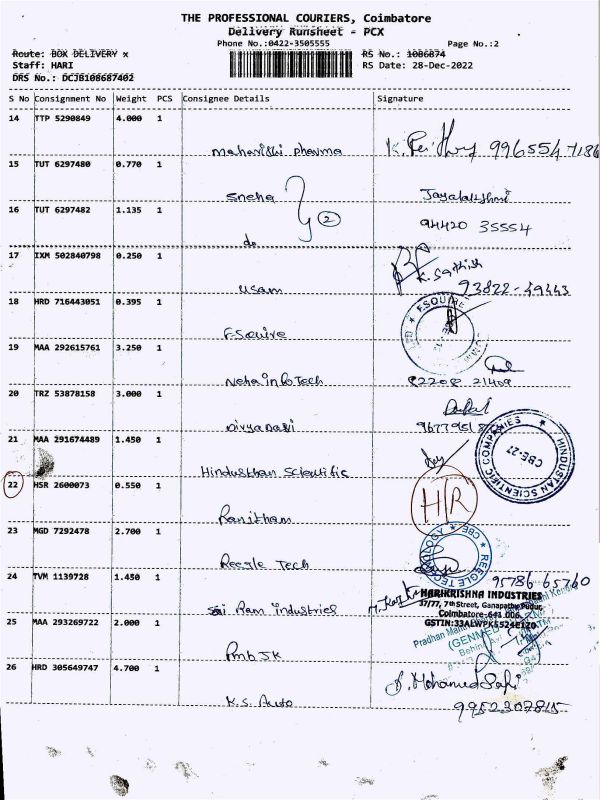 THE PROFESSIONAL COURIERS, Coimbatore
Delivery Runsheet - PCX
Phone No.:0422-3505555
Page No.:2
Route: BOX DELIVERY x
RS No.: 1086874
Staff: HARI
RS Date: 28-Dec-2022
DRS No.: DCJB108687402
S No Consignment No Weight PCS Consignee Details Signature
14 TTP 5290849 4.000 1
maharishi pharma
15 TUT 6297480 0.770 1
sneha Jayalakshmi
2
16 TUT 6297482 1.135 1
94420 35554
do
17 IXM 502840798 0.250 1
K. Sathish
usam 93822-49443
18 HRD 716443051 0.395 1
ESQUIRE
Esquire
19 MAA 292615761 3.250 1
Neha info Tech 82208 21409
20 TRZ 53878158 3.000 1
Divya
21 MAA 291674489 1.450 1
HINDUSTAN SCIENTIFIC COMPANIES
CBE-27
Hindusthan Scientific
22 HSR 2600073 0.550 1
H/R
Ranitham
23 MGD 7292478 2.700 1
REEGLE TECHNOLOGY CBE
Reegle Tech
24 TVM 1139728 1.450 1
95786 65760
HARIKRISHNA INDUSTRIES
37/77, 7th Street, Ganapathy Pudur,
Sai Ram industries
Coimbatore-641 006.
25 MAA 293269722 2.000 1
GSTIN:33ALWPK5524E1Z0
Pradhan
(GENMED
Pmb JK
26 HRD 305649747 4.700 1
Mohamed Safi
K.S. Auto 9952307815